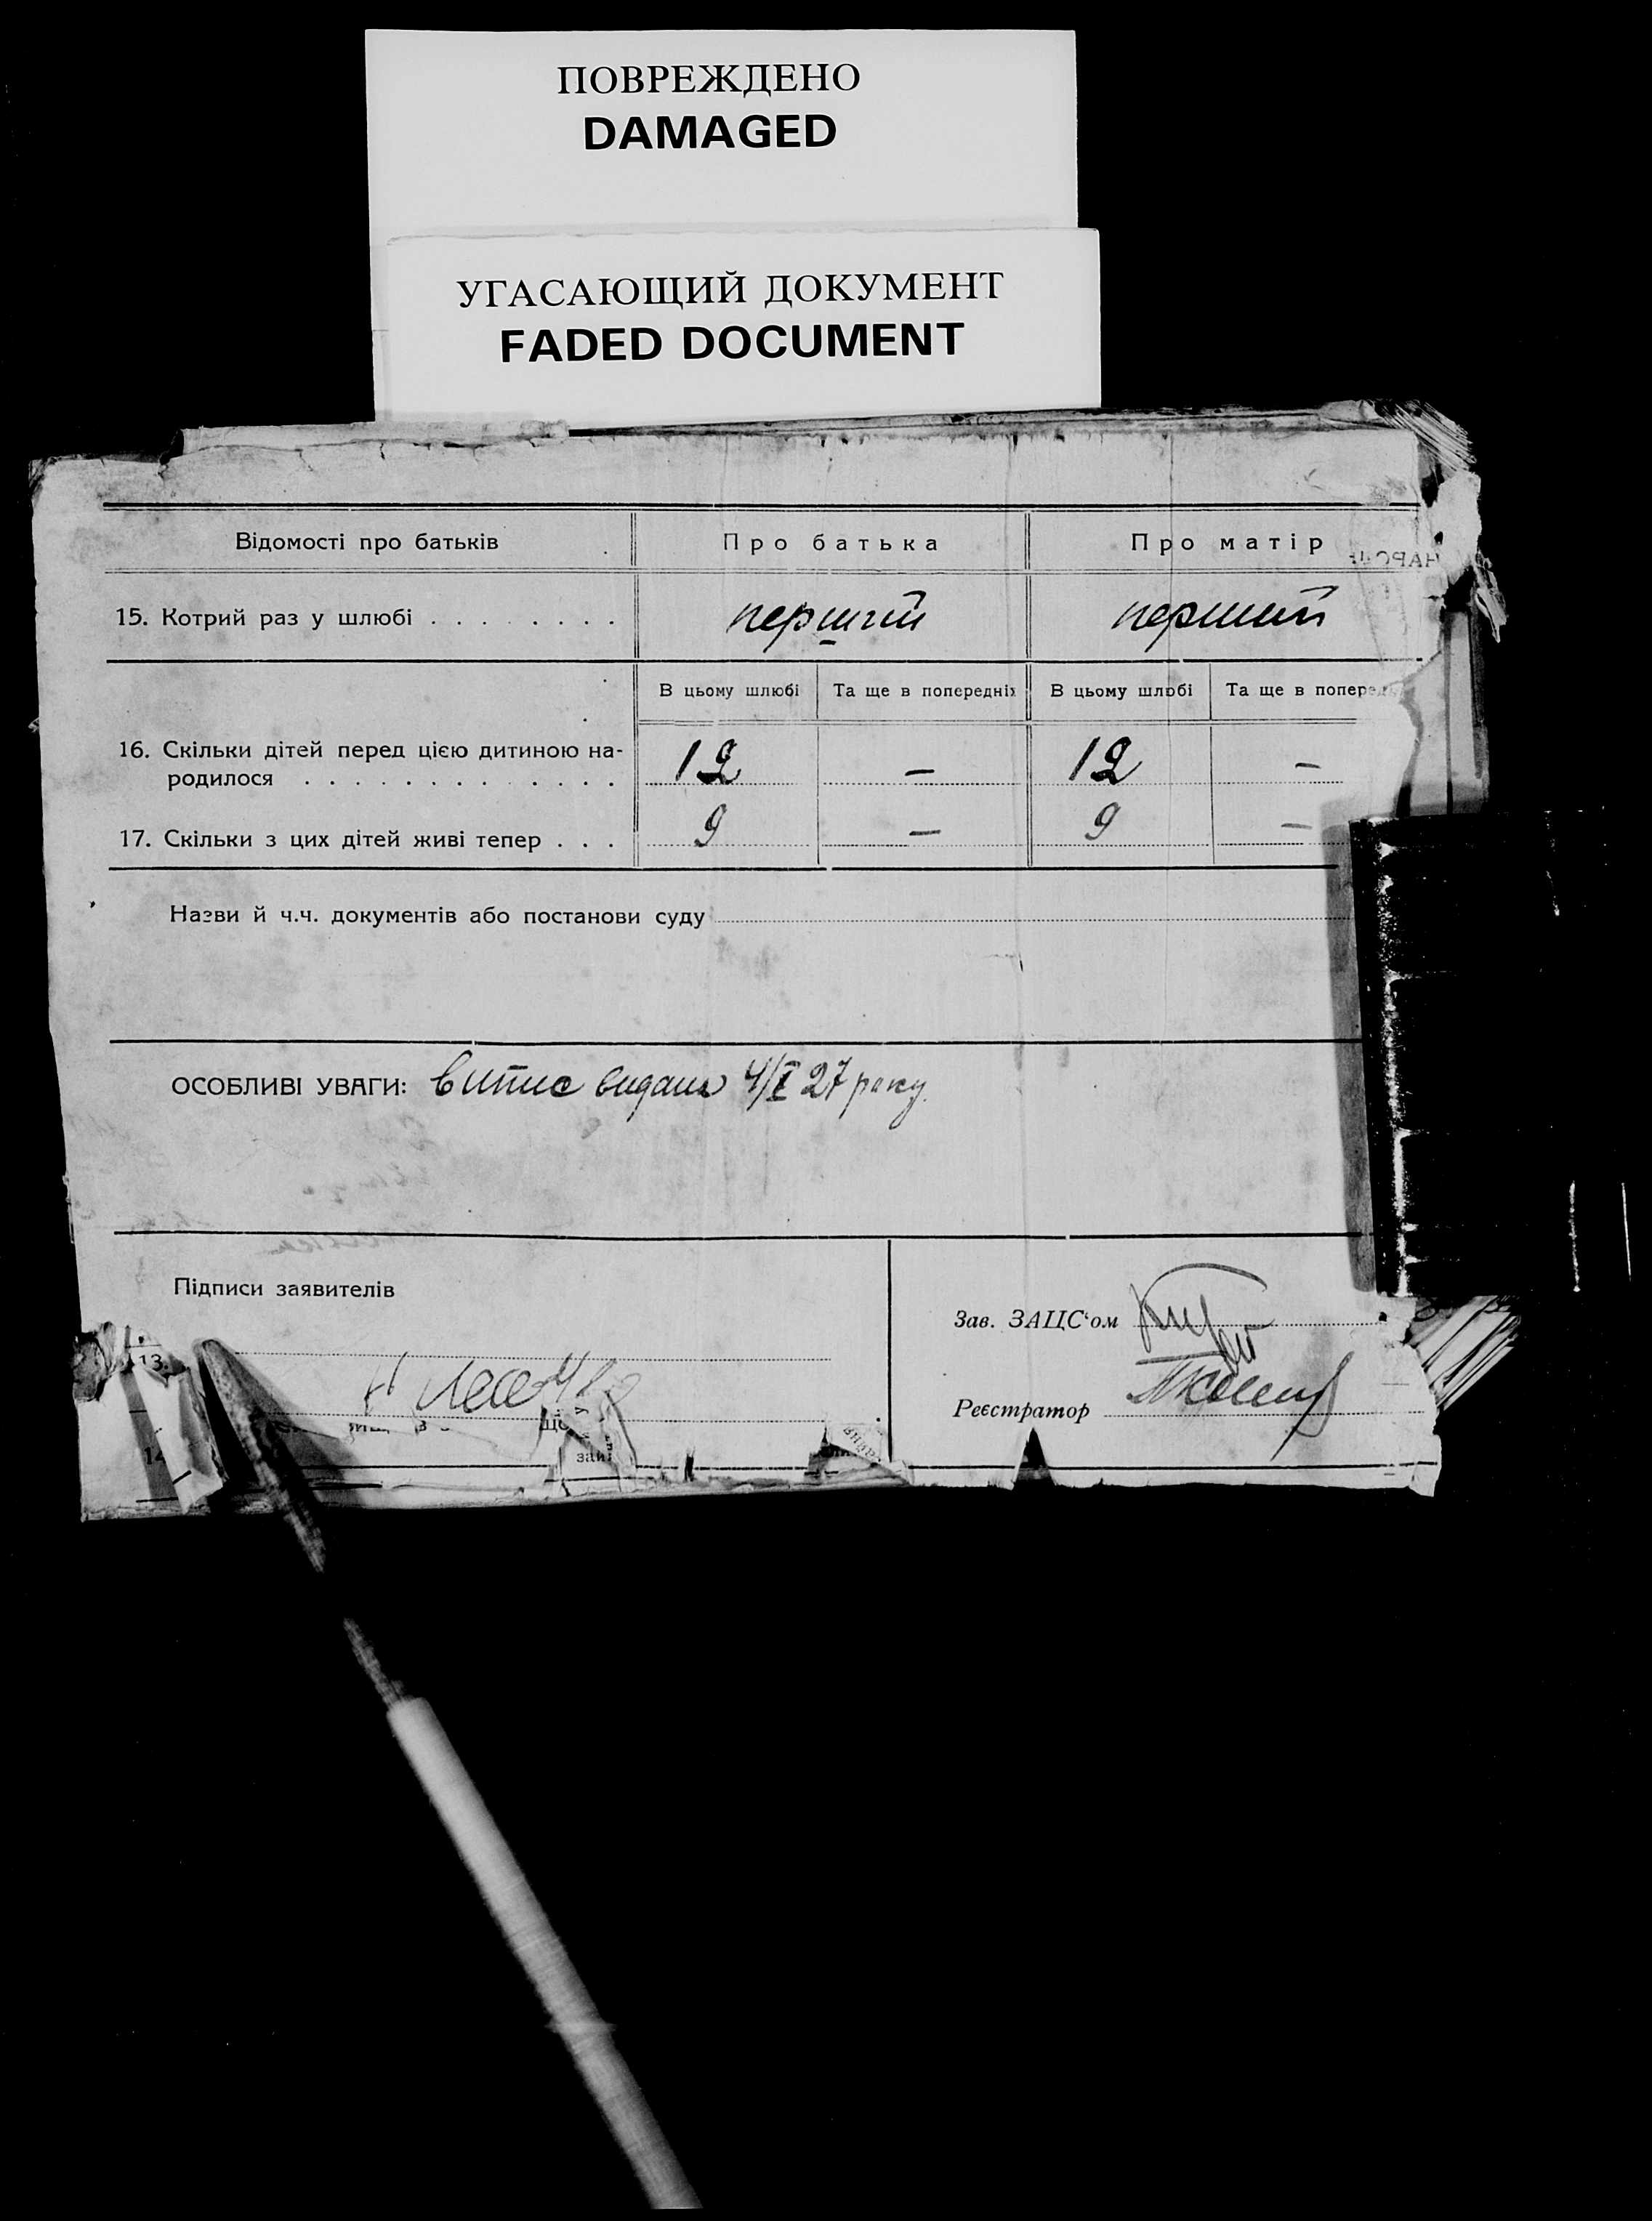 ПОВРЕЖДЕНО
DAMAGED
УГАСАЮЩИЙ ДОКУМЕНТ
FADED DOCUMENT
Відомості про батьків Про батька Про матір
15. Котрий раз у шлюбі . . . . . . . . перший перший
В цьому шлюбі Та ще в попередніх В цьому шлюбі Та ще в поперед
16. Скільки дітей перед цією дитиною на-
родилося . . . . . . . . . . . . . 12 — 12 —
17. Скільки з цих дітей живі тепер . . . 9 — 9 —
Назви й ч.ч. документів або постанови суду
ОСОБЛИВІ УВАГИ: витис видана 4/I 27 року.
Підписи заявителів
Зав. ЗАЦС‘ом
13.
Реєстратор
14
зай